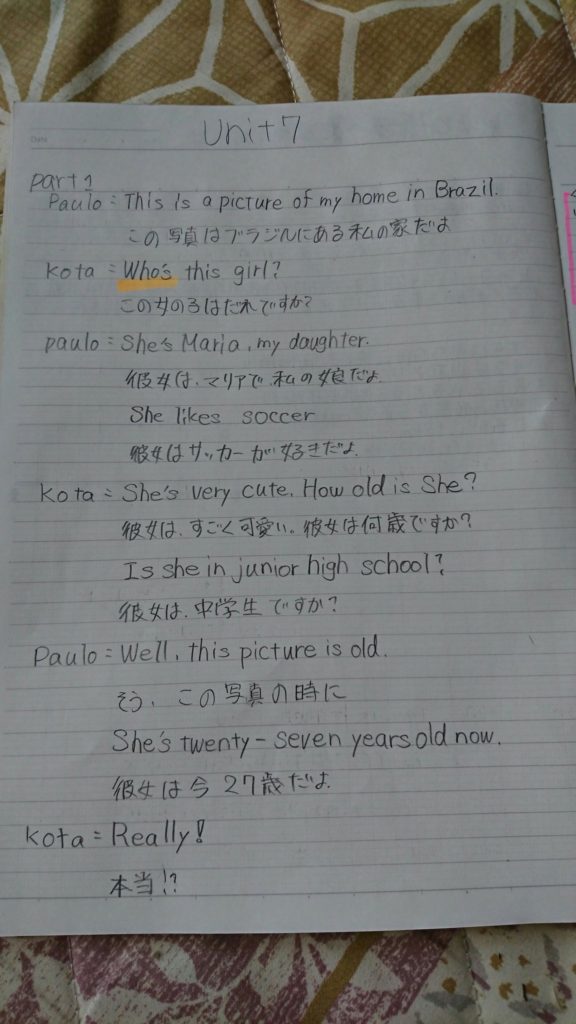 Date
Unit 7
part 1
Paulo = This is a picture of my home in Brazil.
この写真はブラジルにある私の家だよ
kota = Who's this girl?
この女の子はだれですか?
paulo = She's Maria, my daughter.
彼女は、マリアで私の娘だよ.
She likes soccer
彼女はサッカーが好きだよ.
kota = She's very cute. How old is She?
彼女は、すごく可愛い。彼女は何歳ですか?
Is she in junior high school?
彼女は、中学生ですか?
Paulo = Well, this picture is old.
そう、この写真の時に
She's twenty-seven years old now.
彼女は今27歳だよ.
kota = Really!
本当!?